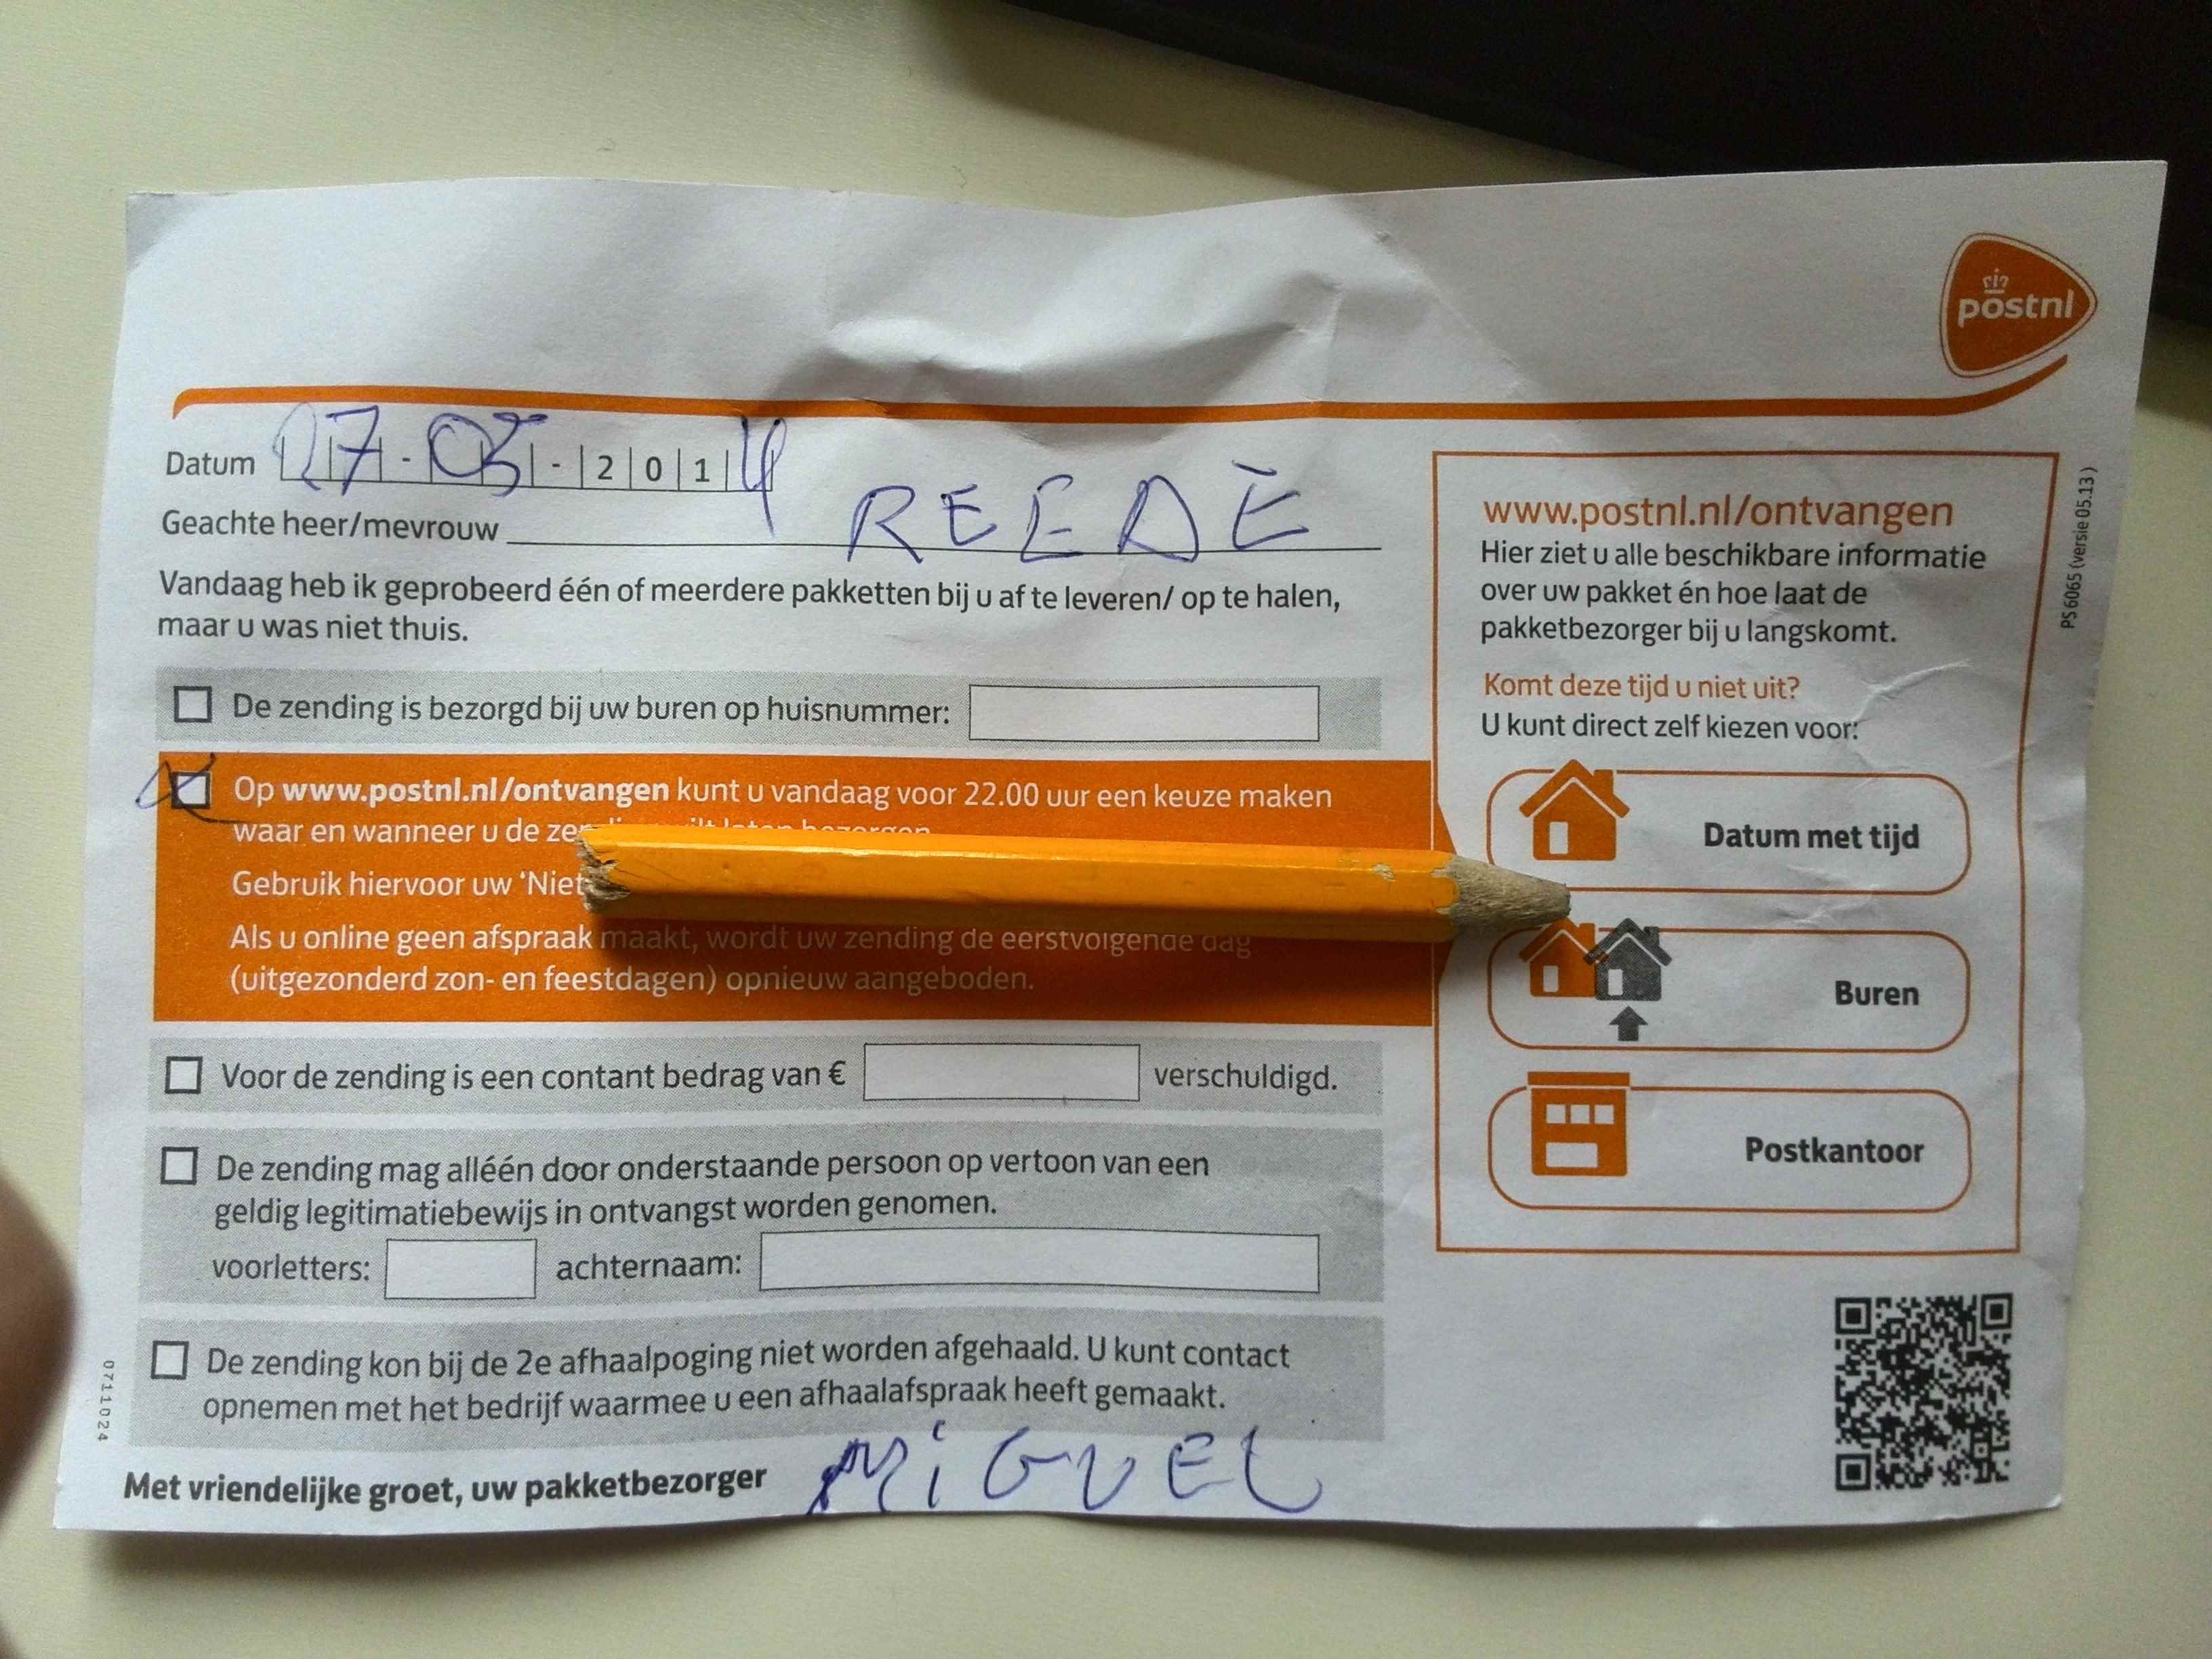 postnl
Datum 27-05-2014
Geachte heer/mevrouw REEDE
Vandaag heb ik geprobeerd één of meerdere pakketten bij u af te leveren/ op te halen,
maar u was niet thuis.
De zending is bezorgd bij uw buren op huisnummer:
Op www.postnl.nl/ontvangen kunt u vandaag voor 22.00 uur een keuze maken
waar en wanneer u de
Gebruik hiervoor uw
Als u online geen afspraak maakt, wordt uw zending de eerstvolgende dag
(uitgezonderd zon- en feestdagen) opnieuw aangeboden.
Voor de zending is een contant bedrag van € verschuldigd.
De zending mag alléén door onderstaande persoon op vertoon van een
geldig legitimatiebewijs in ontvangst worden genomen.
voorletters: achternaam:
De zending kon bij de 2e afhaalpoging niet worden afgehaald. U kunt contact
opnemen met het bedrijf waarmee u een afhaalafspraak heeft gemaakt.
Met vriendelijke groet, uw pakketbezorger MiGUEL
0711024
www.postnl.nl/ontvangen
Hier ziet u alle beschikbare informatie
over uw pakket én hoe laat de
pakketbezorger bij u langskomt.
Komt deze tijd u niet uit?
U kunt direct zelf kiezen voor:
Datum met tijd
Buren
Postkantoor
PS6065 (versie 05.13)